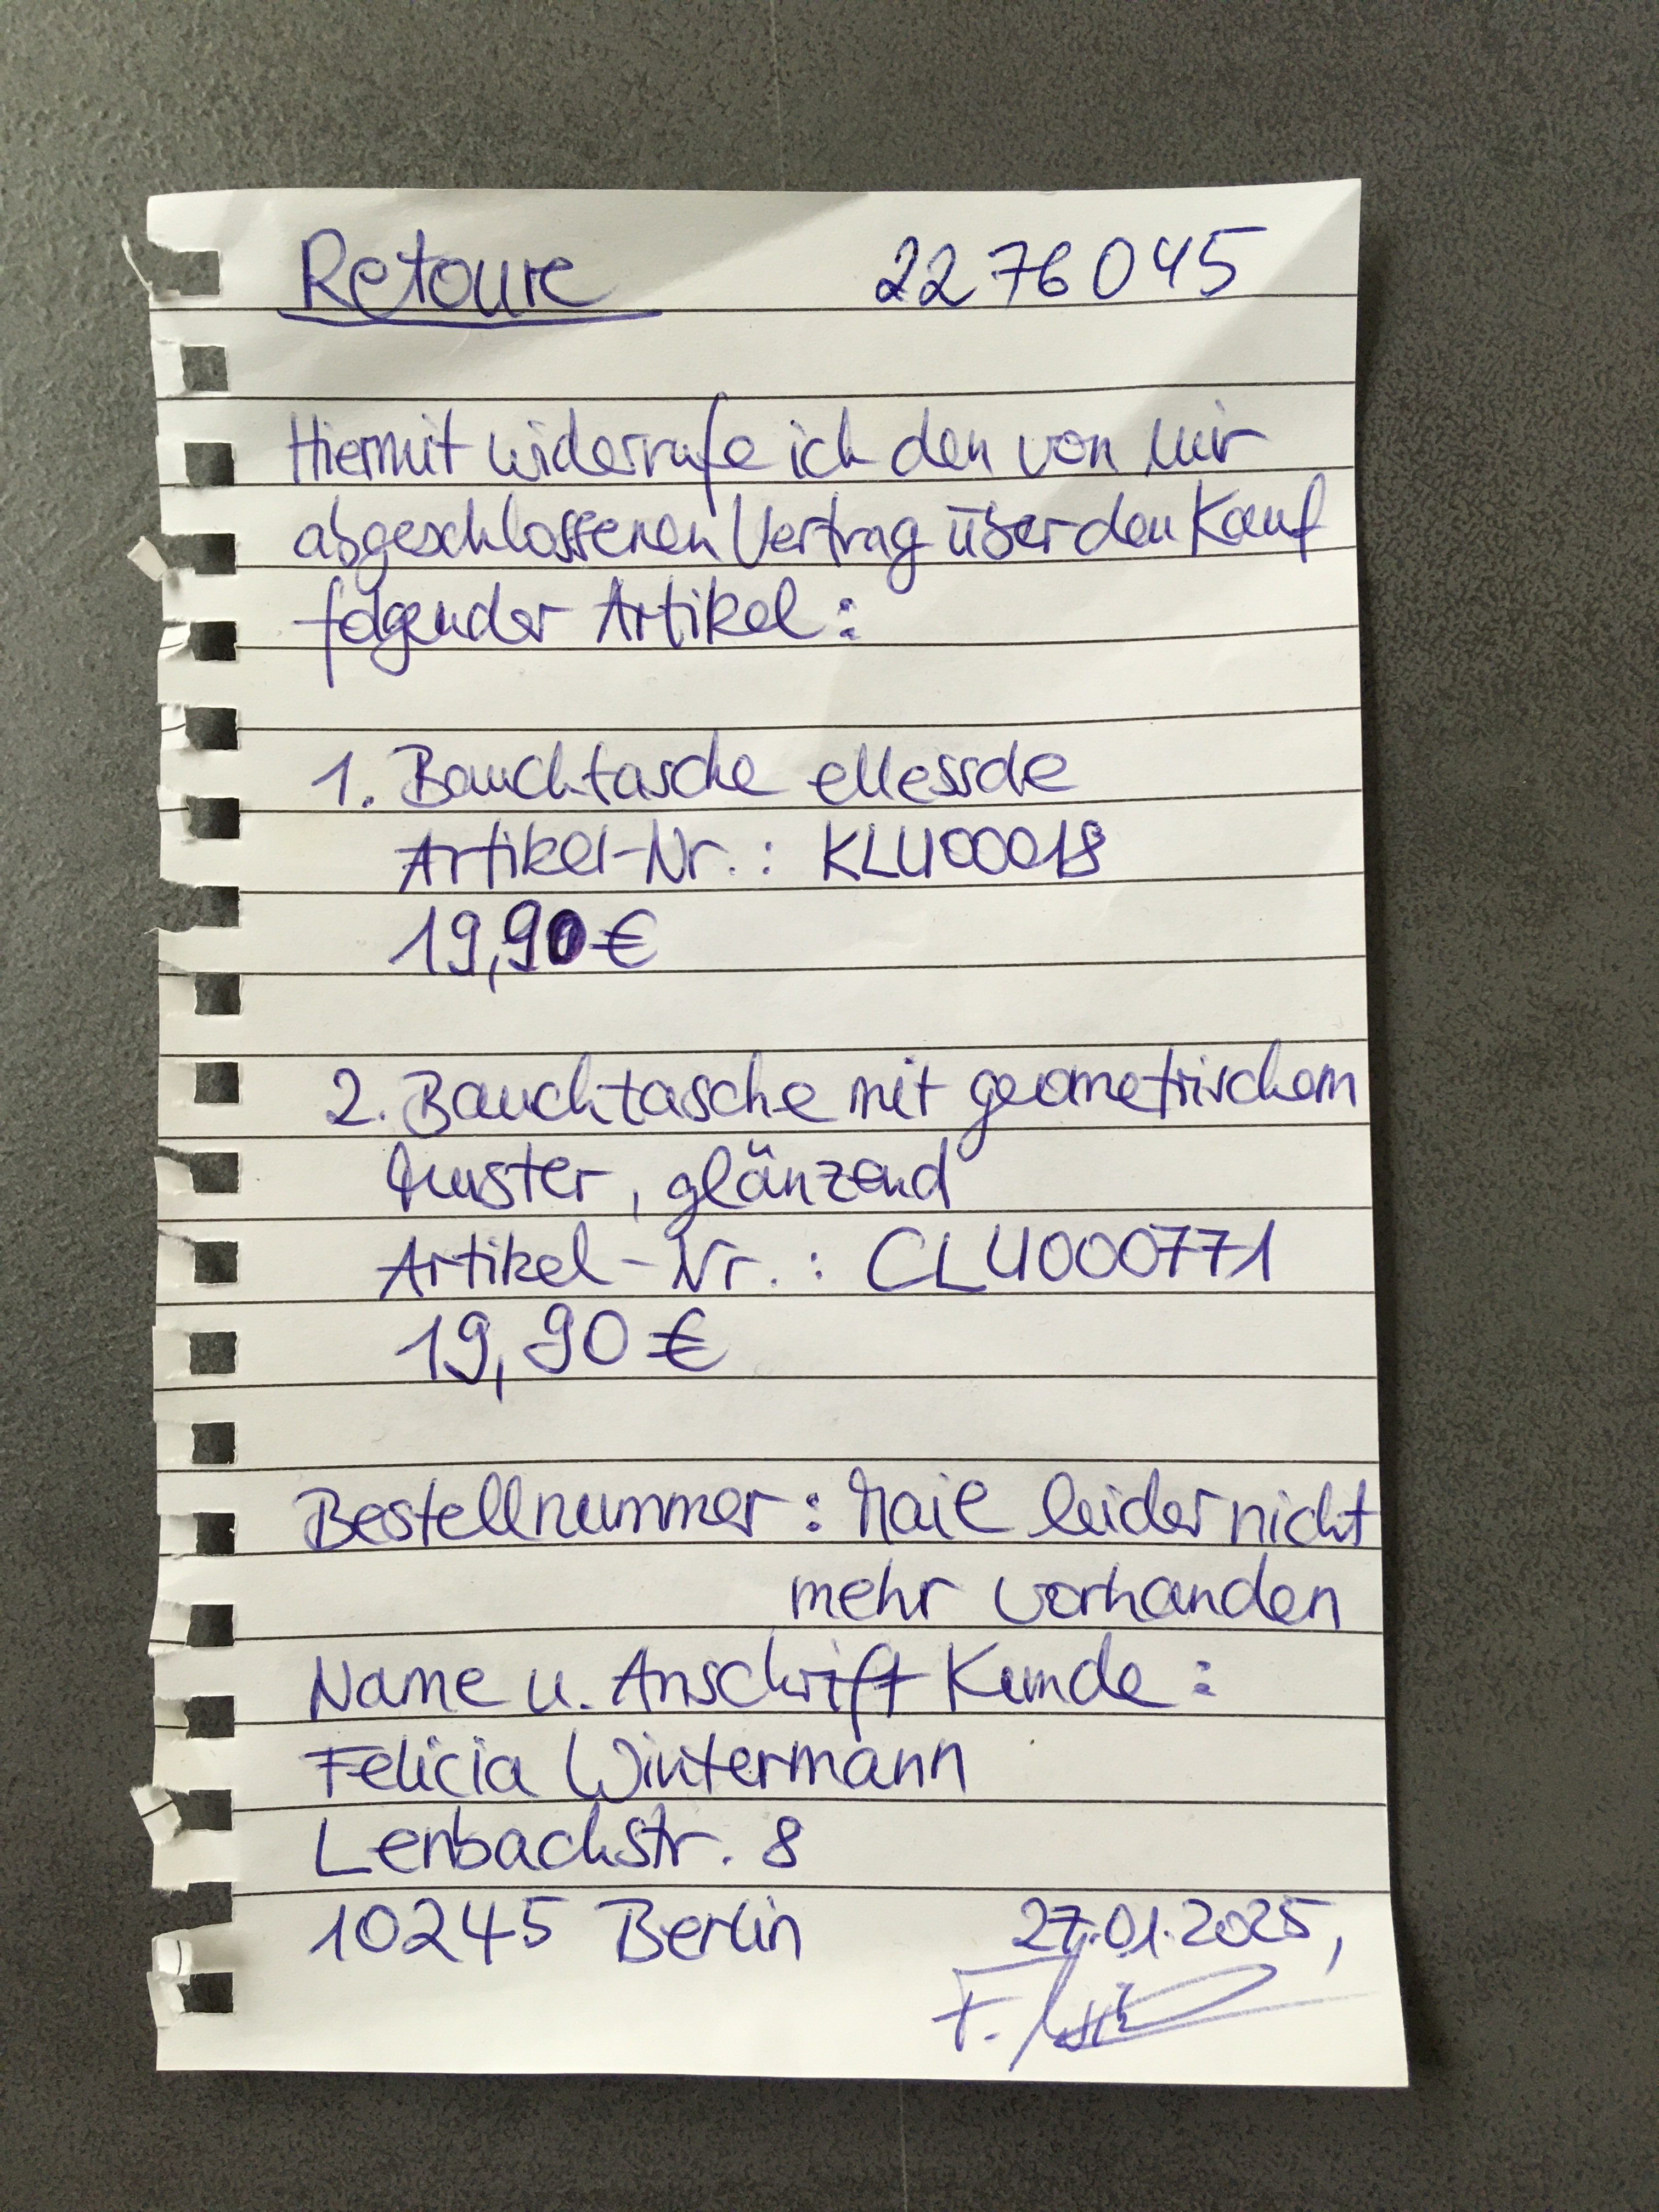 Retoure 2276045
Hiermit widerrufe ich den von mir
abgeschlossenen Vertrag über den Kauf
folgender Artikel:
1. Bauchtasche ellessde
Artikel-Nr.: KLU00018
19,90€
2. Bauchtasche mit geometrischem
Muster, glänzend
Artikel-Nr.: CLU000771
19,90€
Bestellnummer: Mail leider nicht
mehr vorhanden
Name u. Anschrift Kunde:
Felicia Wintermann
Lenbachstr. 8
10245 Berlin 27.01.2025,
F.